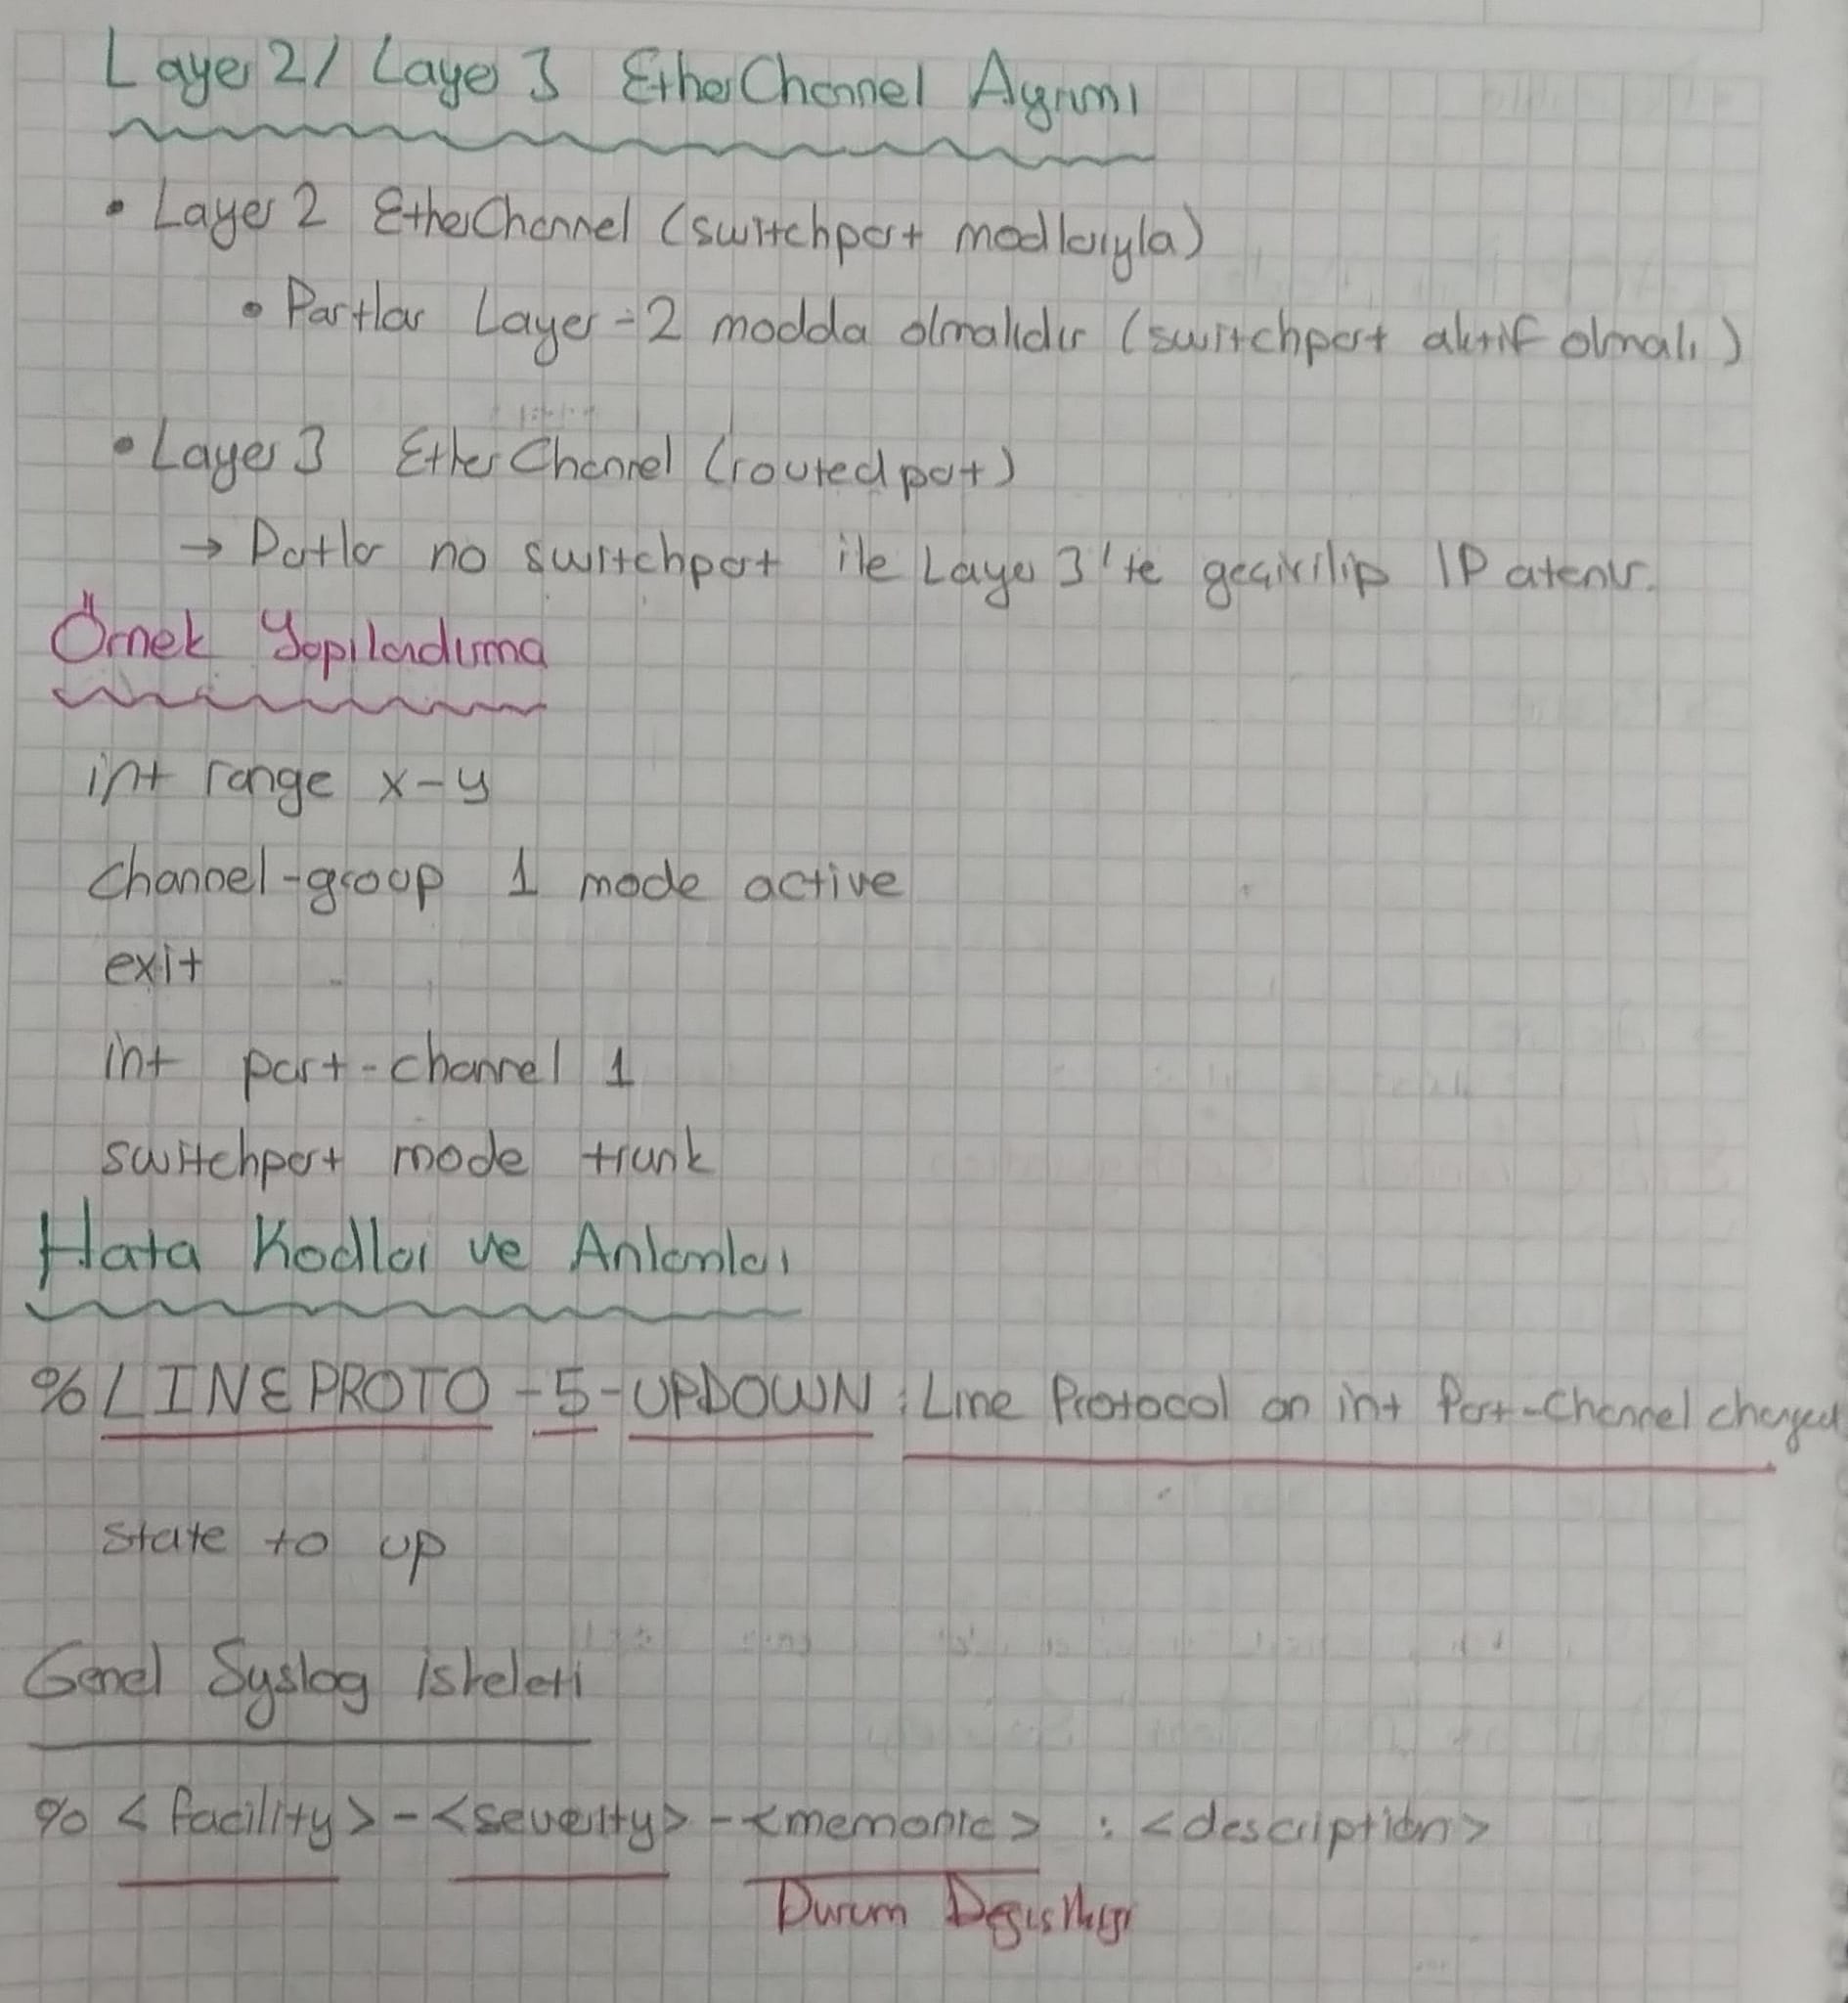 Layer 2 / Layer 3 EtherChannel Ayrımı
• Layer 2 EtherChannel (switchport modlarıyla)
• Portlar Layer-2 modda olmalıdır (switchport aktif olmalı)
• Layer 3 EtherChannel (routed port)
→ Portlar no switchport ile Layer 3'te geçirilip IP atanır.
Örnek Yapılandırma
int range x-y
channel-group 1 mode active
exit
int port-channel 1
switchport mode trunk
Hata Kodları ve Anlamları
%LINEPROTO-5-UPDOWN : Line Protocol on int Port-Channel changed
state to up
Genel Syslog iskeleti
% <facility> - <severity> - <memonic> : <description>
Durum Değişikliği